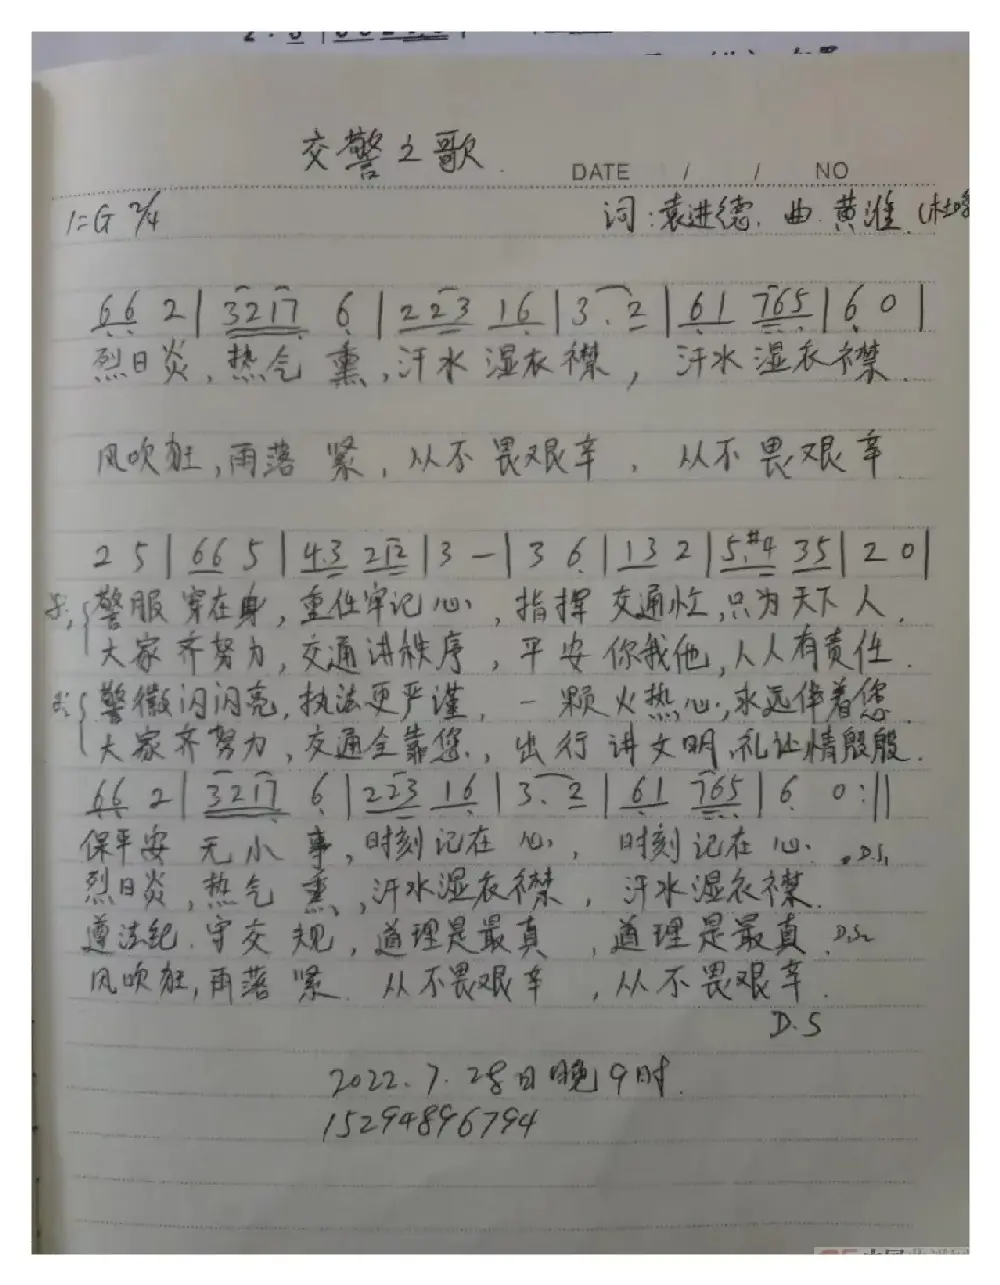 交警之歌
DATE / / NO
1=G 2/4 词:袁进德. 曲.黄淮.
6 6 2 | 3 2 1 7 6 | 2 2 3 1 6 | 3 . 2 | 6 1 7 6 5 | 6 0 |
烈日炎,热气熏,汗水湿衣襟,汗水湿衣襟.
风吹狂,雨落紧,从不畏艰辛,从不畏艰辛
2 5 | 6 6 5 | 4 3 2 1 2 | 3 - | 3 6 | 1 3 2 | 5. #4 3 5 | 2 0 |
警服穿在身,重任牢记心,指挥交通忙,只为天下人.
大家齐努力,交通讲秩序,平安你我他,人人有责任.
警徽闪闪亮,执法更严谨,一颗火热心,永远伴着您
大家齐努力,交通全靠您,出行讲文明,礼让情殷殷.
6 6 2 | 3 2 1 7 6 | 2 2 3 1 6 | 3 . 2 | 6 1 7 6 5 | 6 0 :||
保平安无小事,时刻记在心,时刻记在心. D.S1
烈日炎,热气熏,汗水湿衣襟,汗水湿衣襟.
遵法纪.守交规,道理是最真,道理是最真. D.S2
风吹狂,雨落紧.从不畏艰辛,从不畏艰辛.
D.S
2022.7.28日晚9时.
15294896794